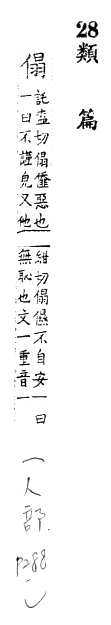 28類
篇
傝
託盍切傝㒎惡也一
一曰不謹皃又他
紺切傝儑不自安一曰
無恥也文一重音一
(人部.
P288)